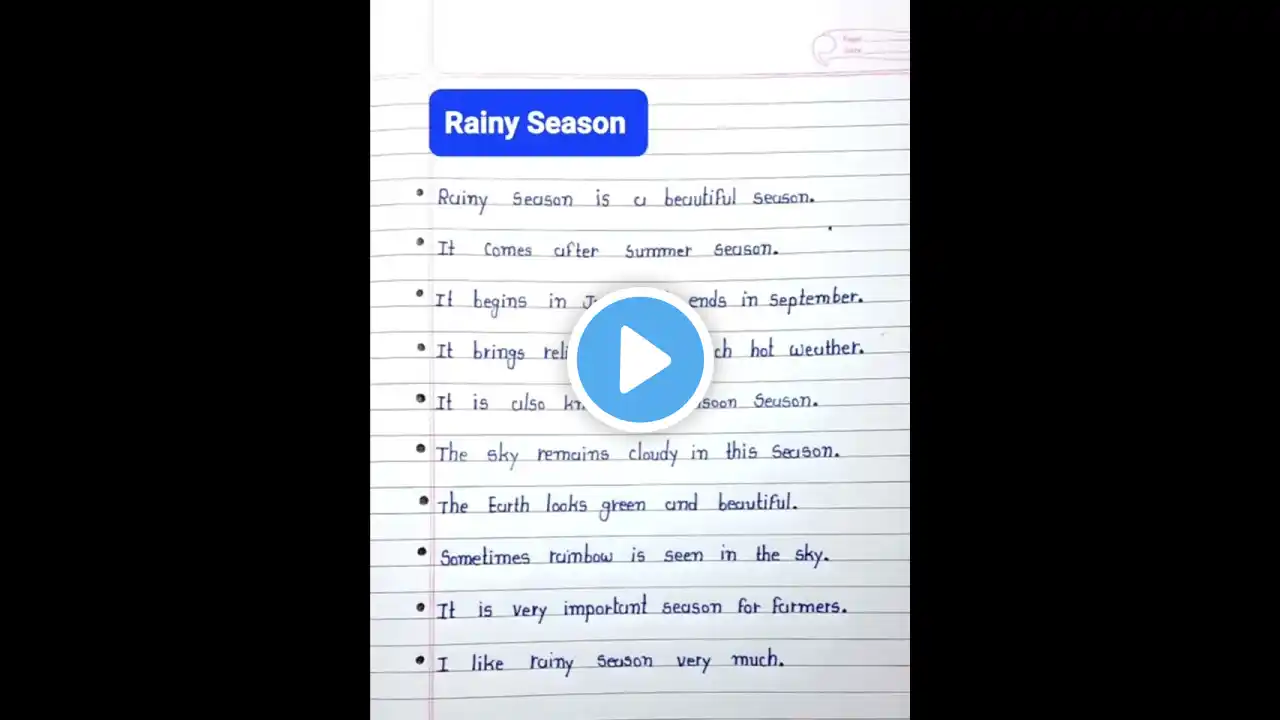 Rainy Season
• Rainy season is a beautiful season.
• It comes after summer season.
• It begins in ends in september.
• It brings hot weather.
• It is also season.
• The sky remains cloudy in this season.
• The Earth looks green and beautiful.
• Sometimes rainbow is seen in the sky.
• It is very important season for farmers.
• I like rainy season very much.